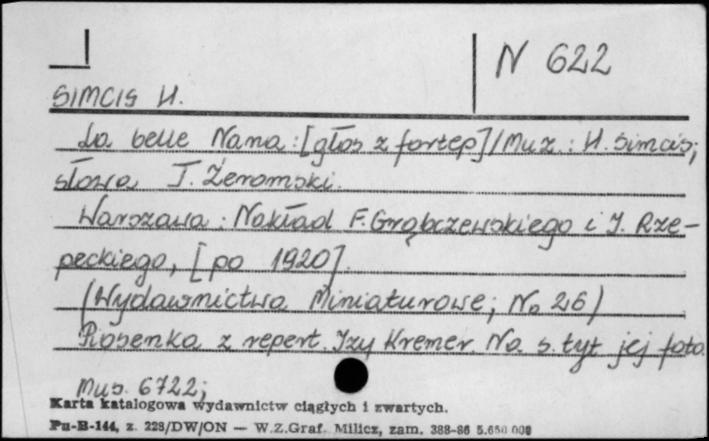 N 622
SIMCIS H.
La belle Nana : [głos z fortep] / Muz. : H. Simcis;
słowa J. Żeromski.
Warszawa : Nakład F. Grąbczewskiego i J. Rze-
peckiego, [po 1920].
(Wydawnictwo Miniaturowe; No 26)
Piosenka z repert. Izy Kremer. Na s. tyt jej foto.
Mus. 6722;
Karta katalogowa wydawnictw ciągłych i zwartych.
Pu-B-144, z. 228/DW/ON — W.Z.Graf. Milicz, zam. 388-86 5.650 000